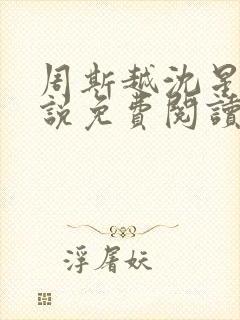 周斯越沈星
說免費閱讀
浮屠妖